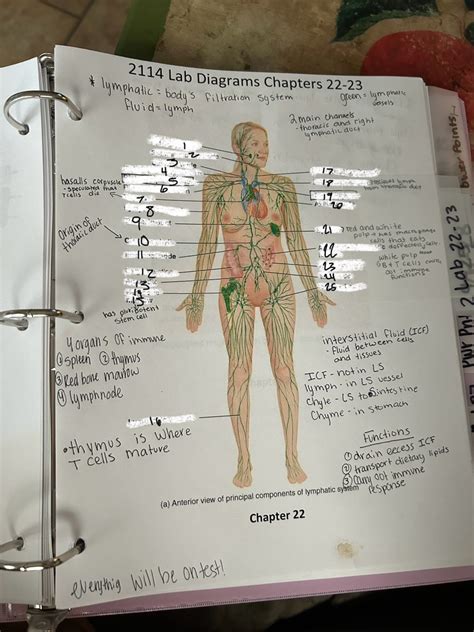 2114 Lab Diagrams Chapters 22-23
* lymphatic = body's filtration system
fluid = lymph
green = lymphatic
vessels
2 main channels
- thoracic and right
lymphatic duct
1
2
3
4
5
6
7
8
9
10
11
12
13
15
16
17
18
19
20
21
22
23
24
25
- speculated that
T cells die
origin of
thoracic duct
has pluripotent
stem cell
red and white
pulp
white pulp
B + T cells
functions
4 organs of immune
① spleen ② thymus
③ Red bone marrow
④ lymph node
• thymus is where
T cells mature
interstitial fluid (ICF)
- fluid between cells
and tissues
ICF - not in LS
lymph - in LS vessel
chyle - LS to intestine
Chyme - in stomach
Functions
① drain excess ICF
② transport dietary lipids
③ carry out immune
response
(a) Anterior view of principal components of lymphatic system
Chapter 22
everythig will be on test!